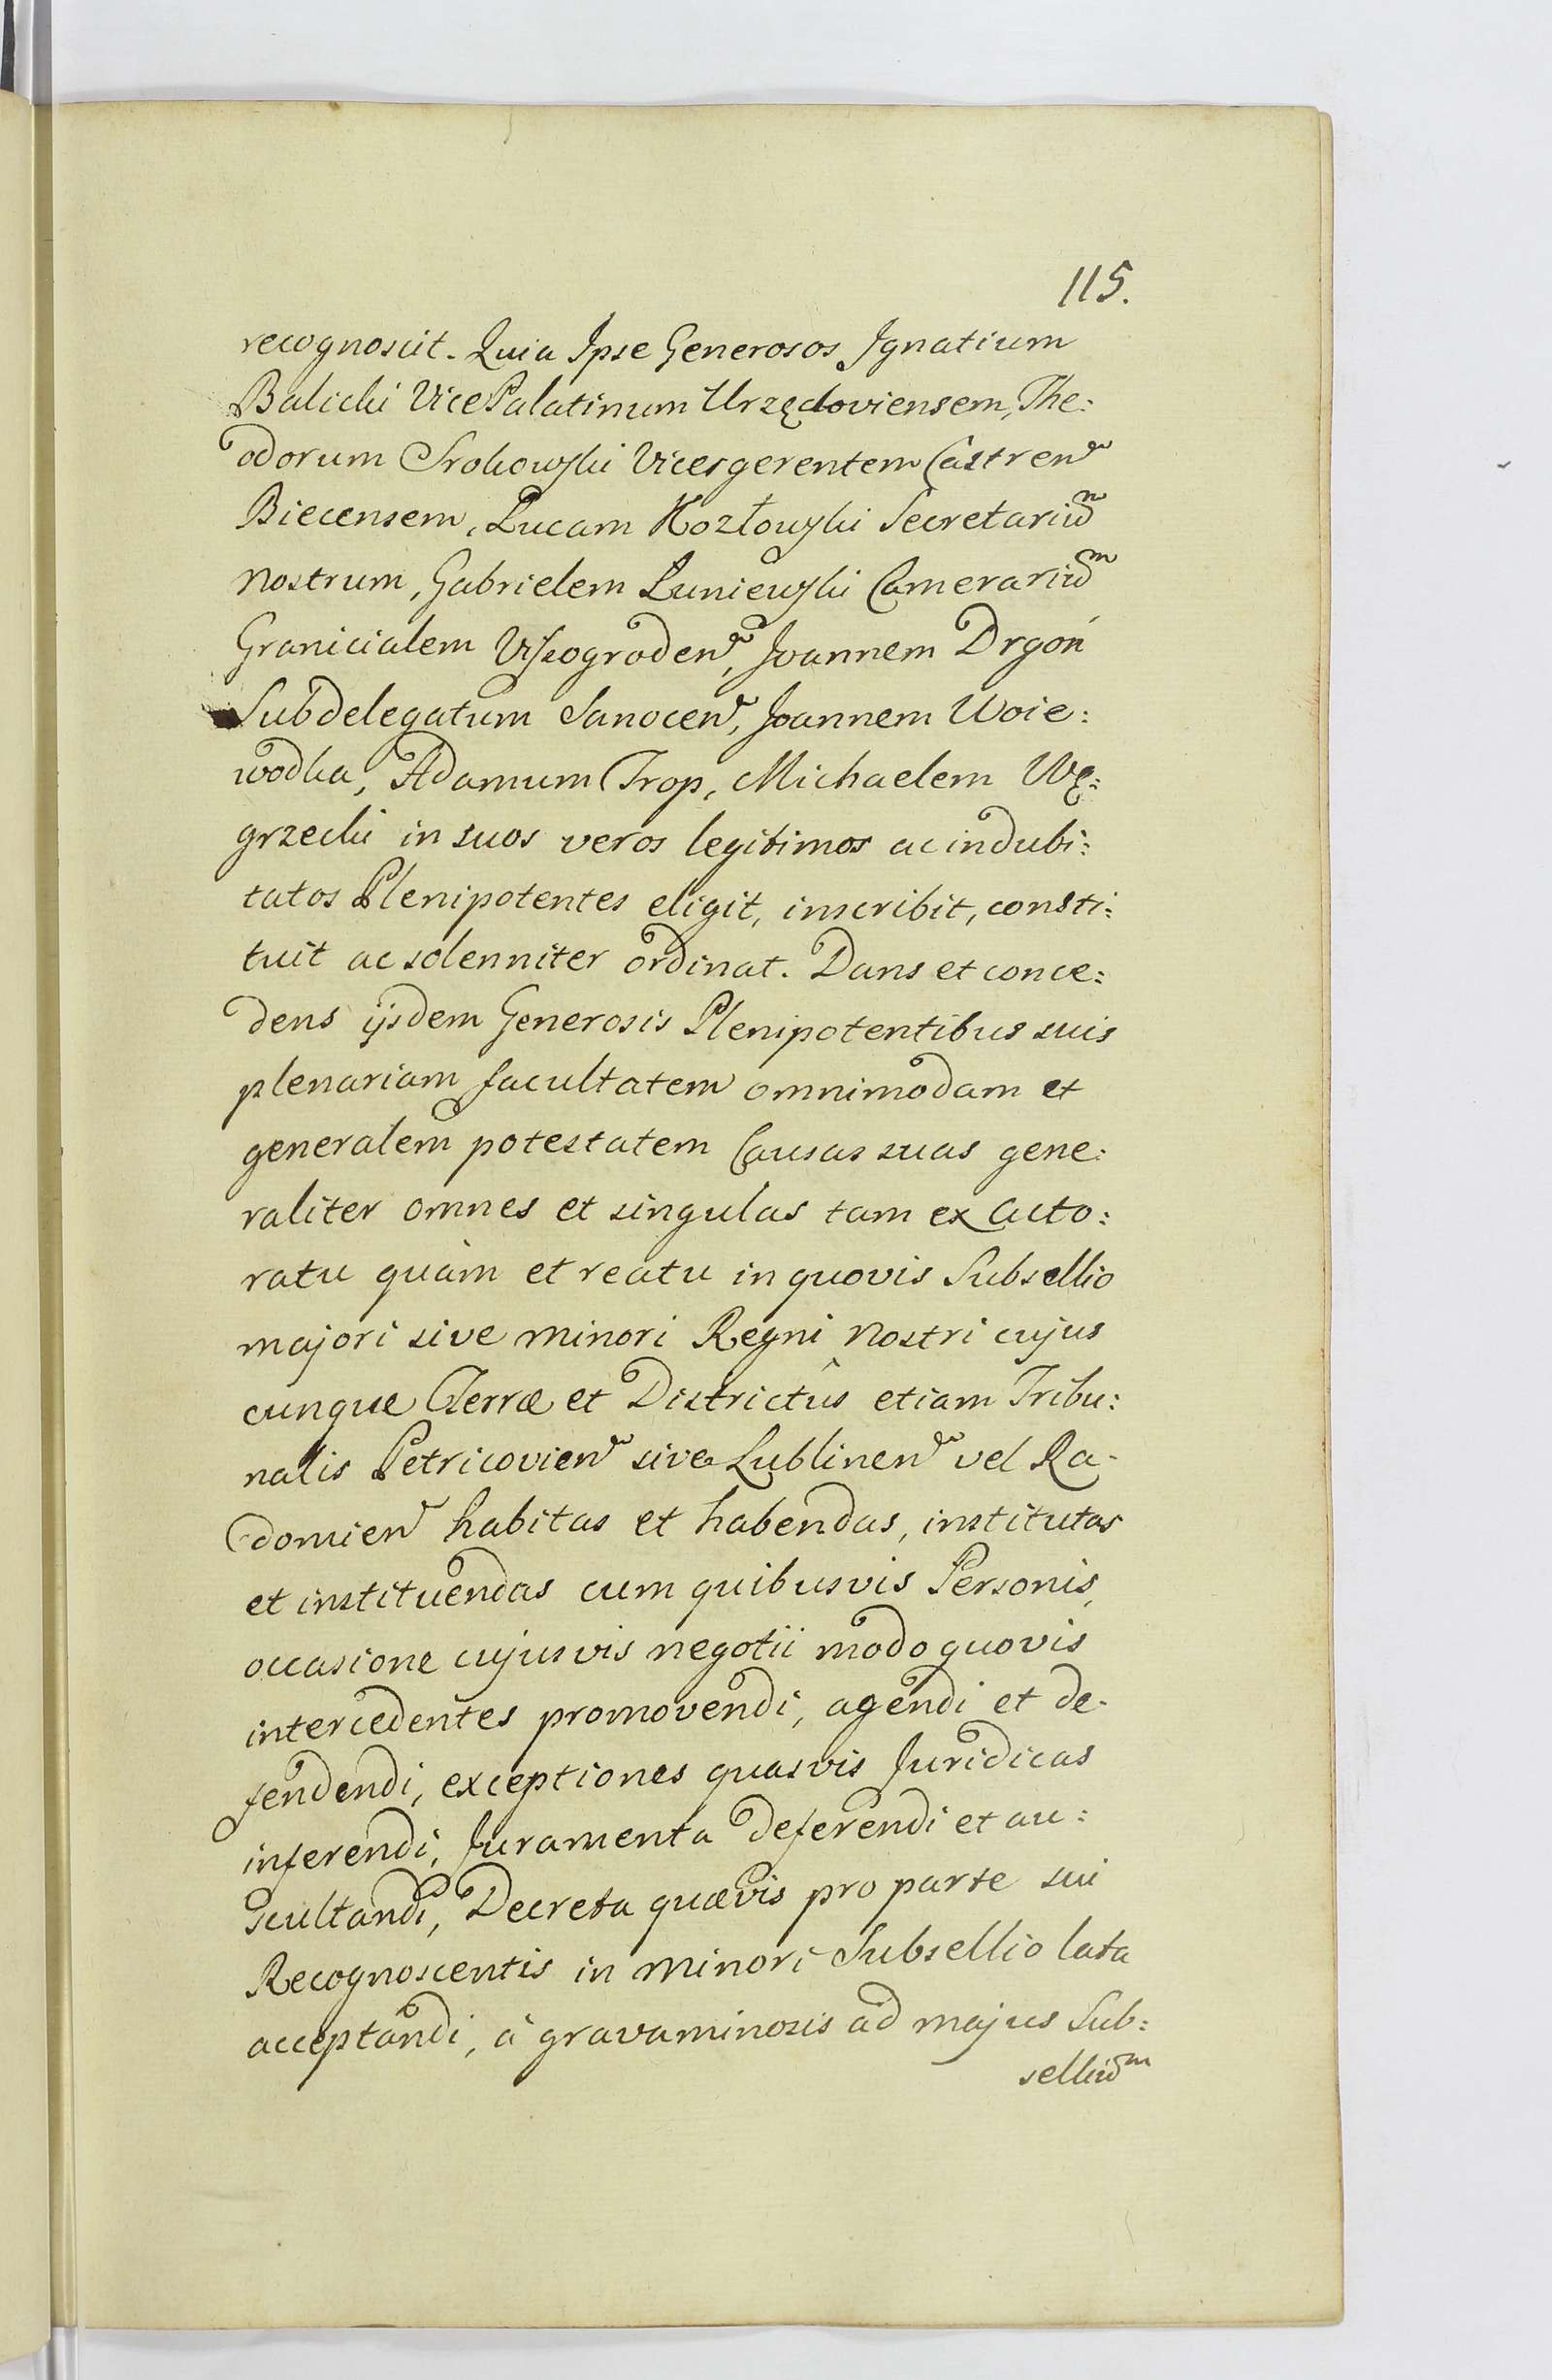 115.
recognoscit. Quia Ipse Generosos Ignatium
Balicki Vice Palatinum Urzędoviensem, The:
odorum Srokowski Vicesgerentem Castren̄
Biecensem, Lucam Kozłowski Secretariū
nostrum, Gabrielem Łuniewski Camerariū
Granicialem Viszogroden̄, Joannem Drgoń
Subdelegatum Sanocen̄, Joannem Woie:
wodka, Adamum Trop, Michaelem Wę:
grzecki in suos veros legitimos ac indubi:
tatos Plenipotentes eligit, inscribit, consti:
tuit ac solenniter ordinat. Dans et conce:
dens ijsdem Generosis Plenipotentibus suis
plenariam facultatem omnimodam et
generalem potestatem Causas suas gene:
raliter omnes et singulas tam ex acto:
ratu quàm et reatu in quovis Subsellio
majori sive minori Regni nostri cujus
cunque Terræ et Districtûs etiam Tribu:
nalis Petricovien̄ sive Lublinen̄ vel Ra-
domien̄ habitas et habendas, institutas
et instituendas cum quibusvis Personis,
occasione cujusvis negotii modo quovis
intercedentes promovendi, agendi et de-
fendendi, exceptiones quasvis Juridicas
inferendi, Juramenta deferendi et au:
scultandi, Decreta quævis pro parte sui
Recognoscentis in minori Subsellio lata
acceptandi, à gravaminosis ad majus Sub:
selliū